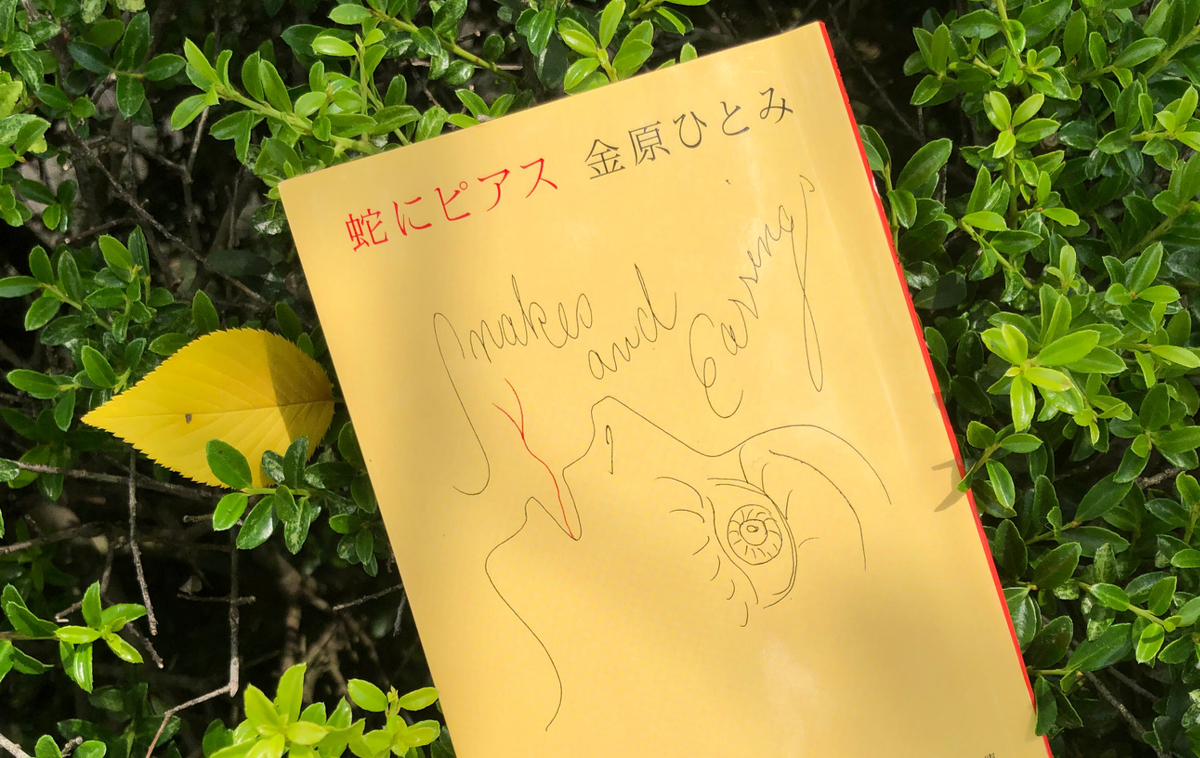 蛇にピアス 金原ひとみ
Snakes
and
Earrings